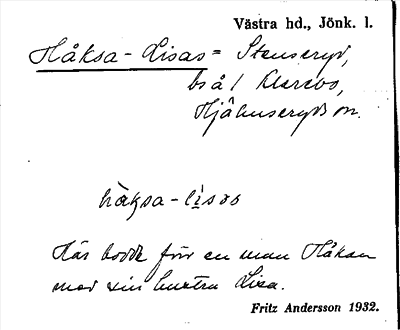 Västra hd., Jönk. l.
Håksa-Lisas = Stenseryd,
bså /
Hjälmseryds sn.
Här bodde förr en man Håkan
med sin hustru Lisa.
Fritz Andersson 1932.